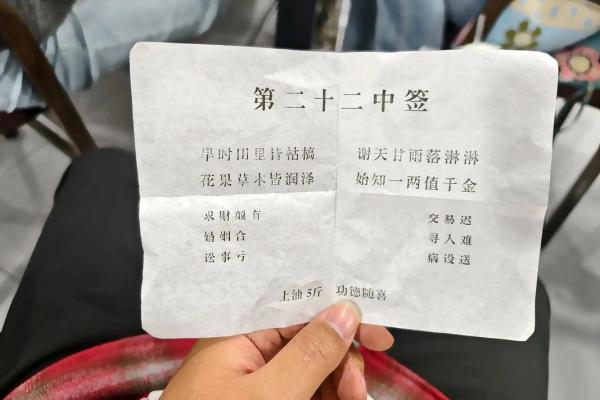 第二十二中签
旱时田里皆枯槁 谢天甘雨落淋淋
花果草木皆润泽 始知一两值千金
求财颇有 交易迟
婚姻合 寻人难
讼事亏 病设送
上油5斤 功德随喜